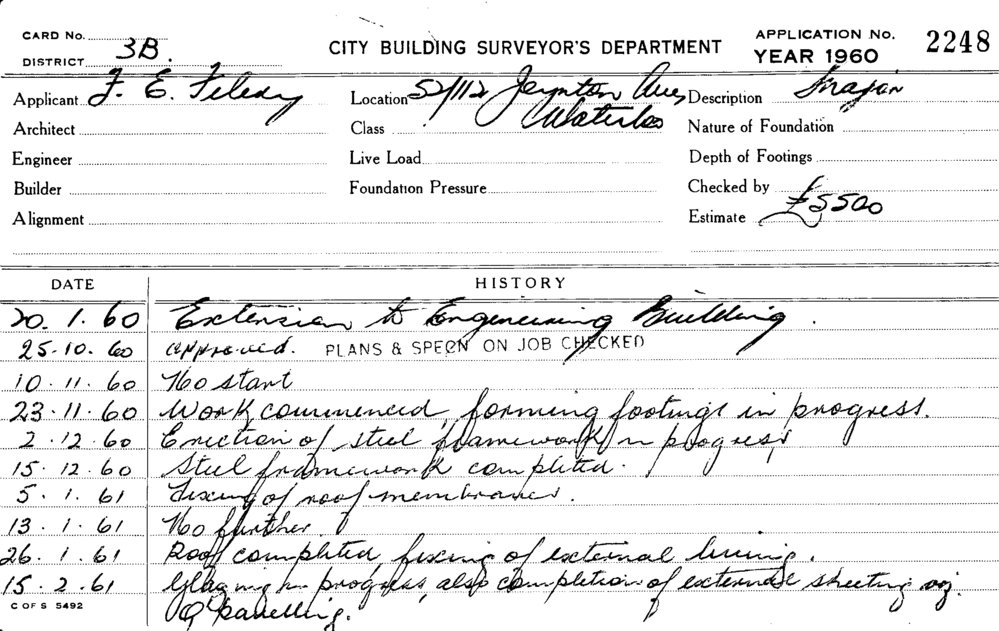 CARD No.
DISTRICT 3B.
CITY BUILDING SURVEYOR'S DEPARTMENT
APPLICATION No. 2248
YEAR 1960
Applicant F. E. Location 52/112 Joynton Ave, Waterloo Description Major
Architect Class Nature of Foundation
Engineer Live Load Depth of Footings
Builder Foundation Pressure Checked by
Alignment Estimate £5500
DATE HISTORY
20. 1. 60 Extension to Engineering Building.
25.10.60 approved. PLANS & SPECN ON JOB CHECKED
10.11.60 No start
23.11.60 Work commenced, forming footings in progress.
2.12.60 Erection of steel framework in progress,
15.12.60 Steel framework completed.
5.1.61 Fixing of roof membranes.
13.1.61 No further
26.1.61 Roof completed, fixing of external lining.
15.2.61 Glazing in progress, also completion of external sheeting
panelling.
C OF S 5492